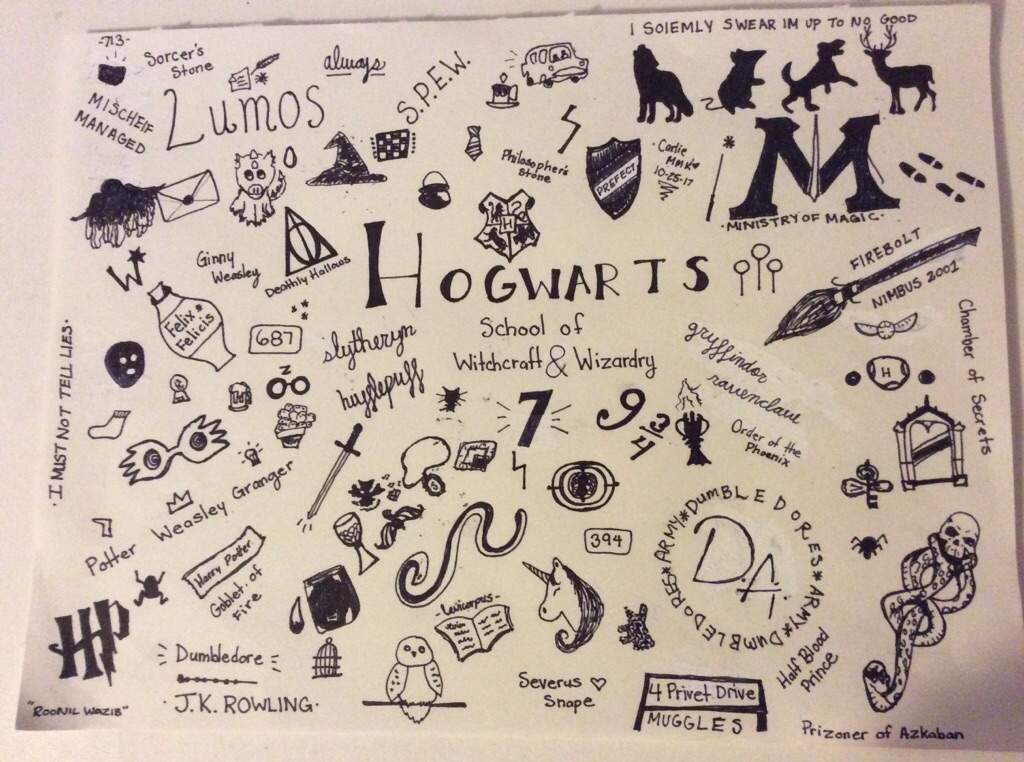 I SOlEMLY SWEAR IM UP TO NO GOOD
-713-
Sorcer's
Stone
always
S.P.E.W.
MISCHEIF
MANAGED
Lumos
Philosopher's
Stone
PREFECT
Carlie
10-25-17
M
MINISTRY OF MAGIC
W
Ginny
Weasley
Deathly Hallows
H
HOGWARTS
School of
Witchcraft & Wizardry
FIREBOLT
NIMBUS 2001
Felix
Felicis
687
slytheryn
hufflepuff
gryffindor
ravenclaw
H
Chamber of Secrets
·I MUST NOT TELL LIES·
Z
7
9 3/4
Order of the
Phoenix
Weasley Granger
Potter
Harry Potter
Goblet of
Fire
394
DUMBLEDORES*ARMY*DUMBLEDORES*ARMY*
D.A.
HP
-Levicorpus-
Half Blood
Prince
Dumbledore
·J.K. ROWLING·
"ROONIL WAZIB"
Severus ♡
Snape
4 Privet Drive
MUGGLES
Prizoner of Azkaban